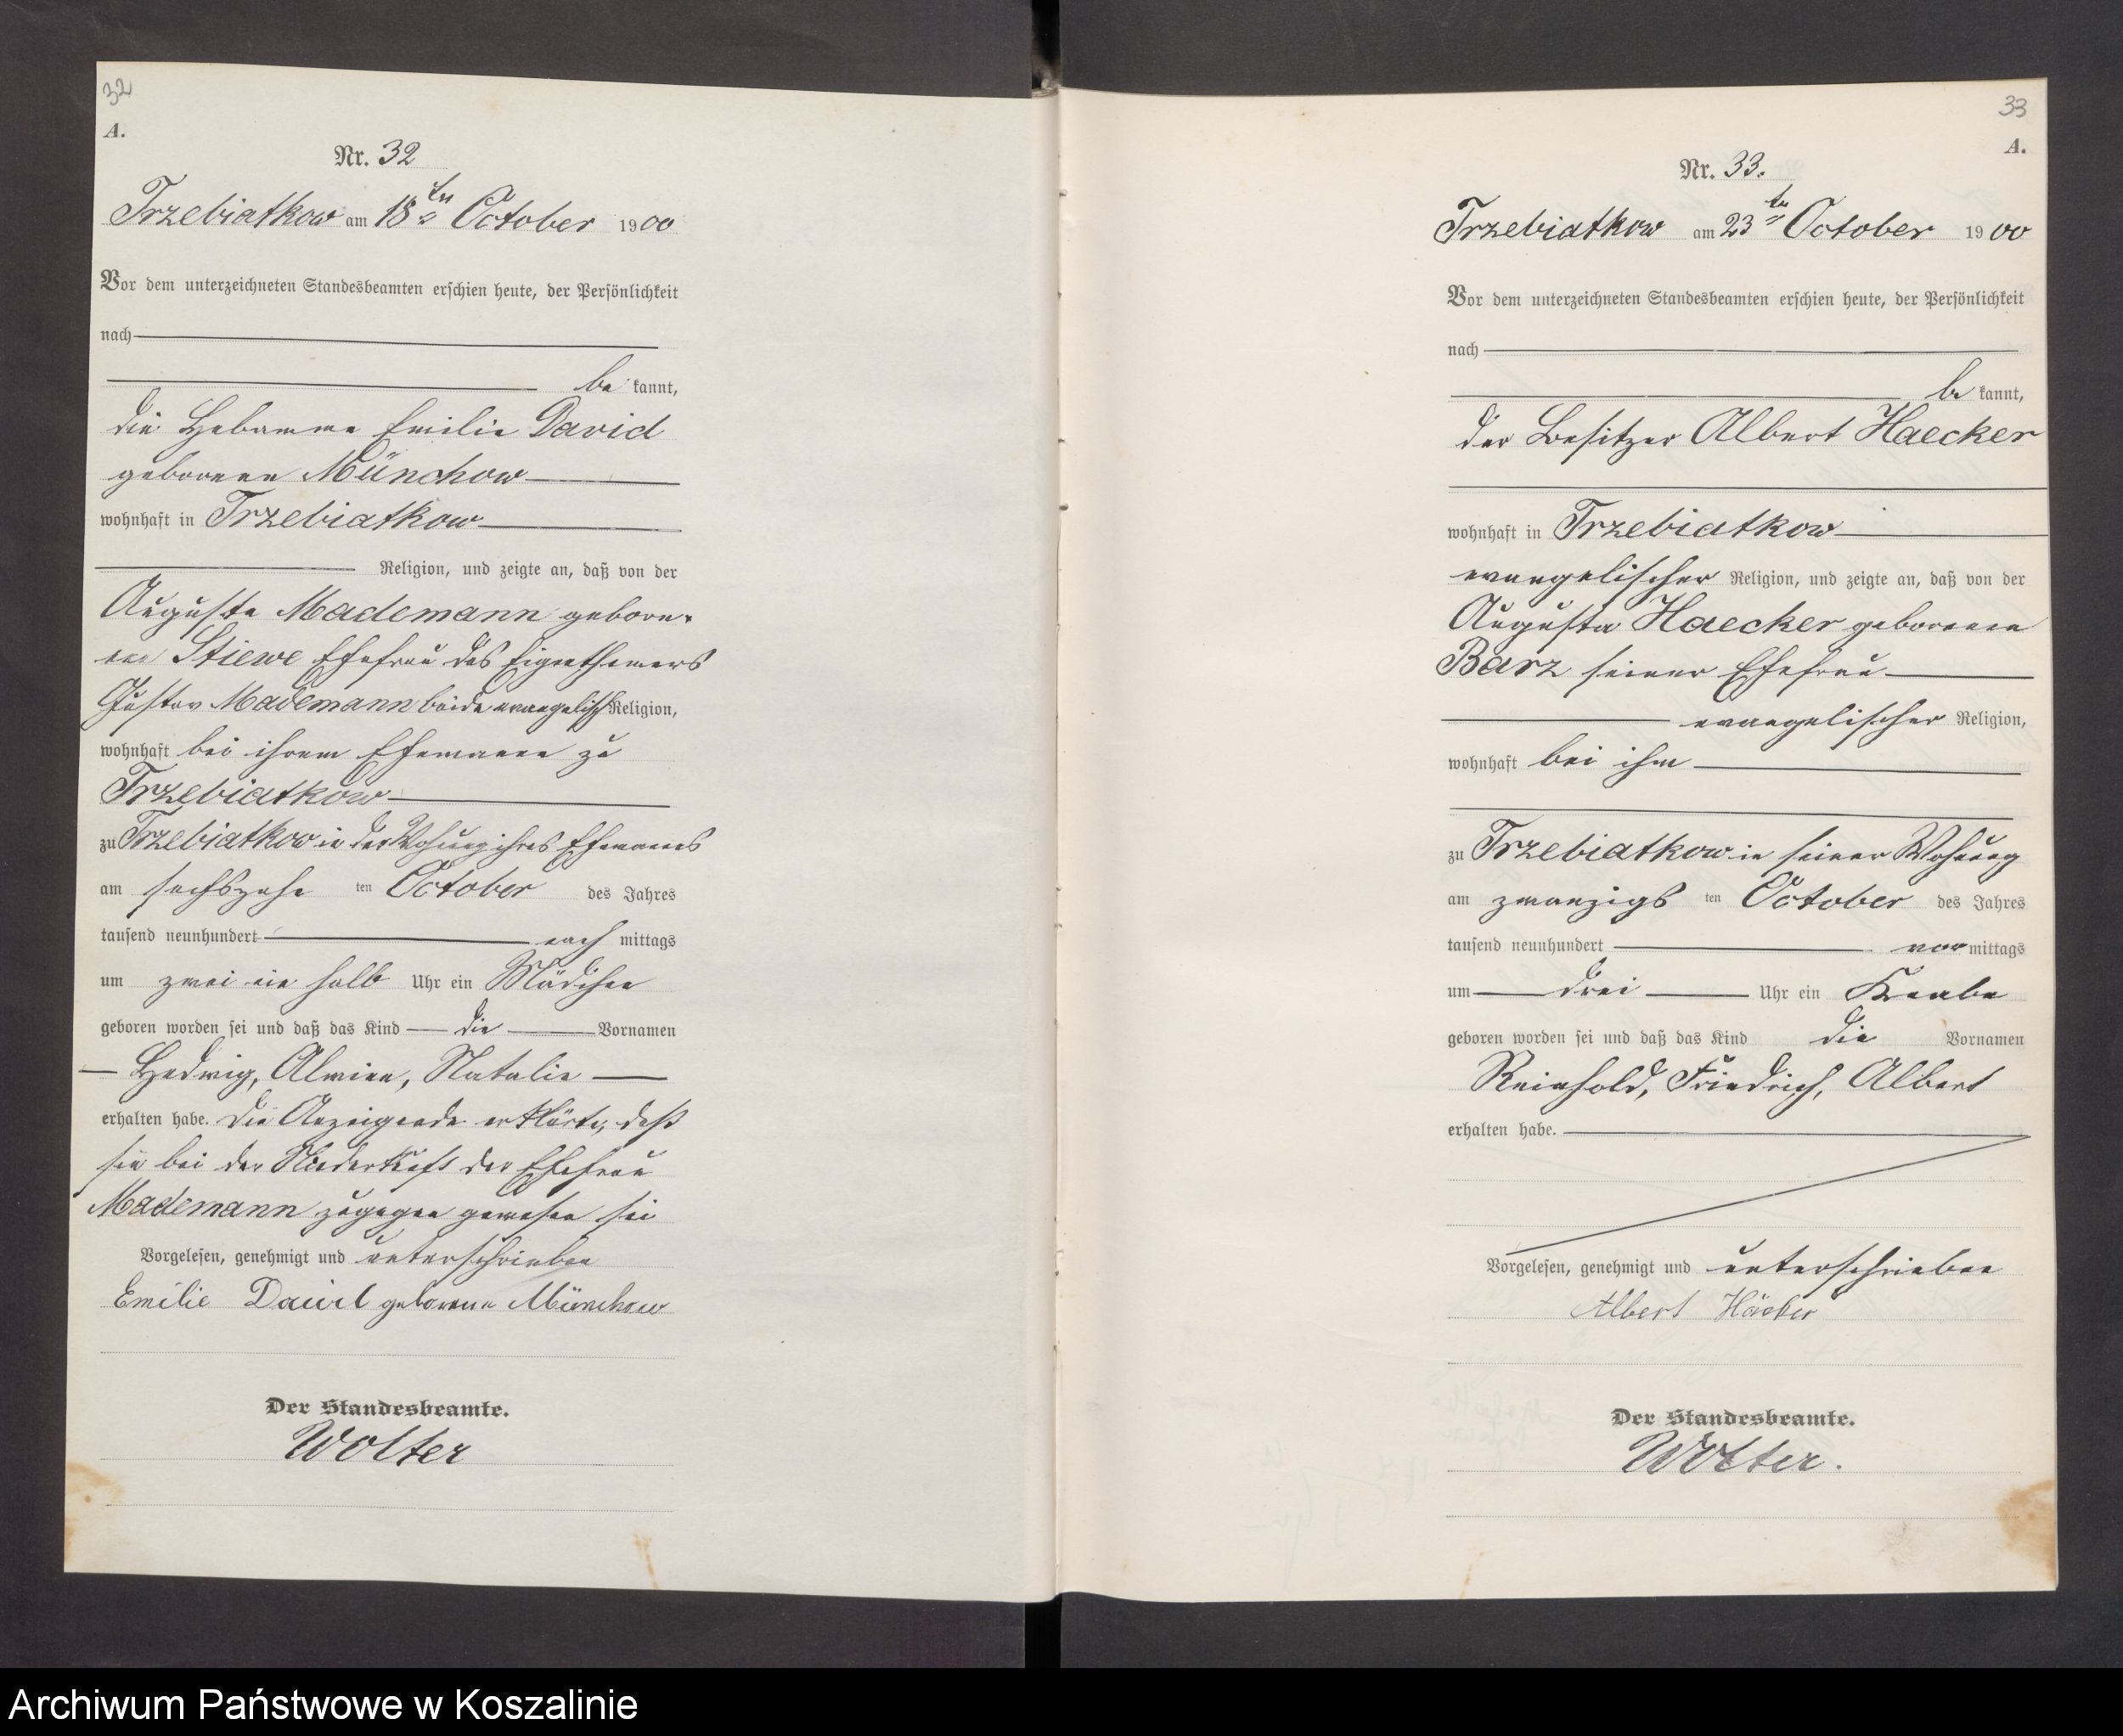 32
A.
Nr. 32
Trzebiatkow am 18ten October 1900
Vor dem unterzeichneten Standesbeamten erschien heute, der Persönlichkeit
nach
be kannt,
die Hebamme Emilie David
geborene Münchow
wohnhaft in Trzebiatkow
Religion, und zeigte an, daß von der
Auguste Mademann gebore-
nen Stiewe Ehefrau des Eigenthümers
Gustav Mademann beide evangelisch Religion,
wohnhaft bei ihrem Ehemanne zu
Trzebiatkow
zu Trzebiatkow in der Wohnung ihres Ehemannes
am sechszehn ten October des Jahres
tausend neunhundert nach mittags
um zwei ein halb Uhr ein Mädchen
geboren worden sei und daß das Kind die Vornamen
Hedwig, Alwine, Natalie
erhalten habe. Die Anzeigende erklärte, daß
sie bei der Niederkuft der Ehefrau
Mademann zugegen gewesen sei
Vorgelesen, genehmigt und unterschrieben
Emilie David geborene Münchow
Der Standesbeamte.
Wolter
33
A.
Nr. 33.
Trzebiatkow am 23ten October 1900
Vor dem unterzeichneten Standesbeamten erschien heute, der Persönlichkeit
nach
be kannt,
der Besitzer Albert Haecker
wohnhaft in Trzebiatkow
evangelischer Religion, und zeigte an, daß von der
Augusta Haecker geborenen
Barz seiner Ehefrau
evangelischer Religion,
wohnhaft bei ihm
zu Trzebiatkow in seiner Wohnung
am zwanzigs ten October des Jahres
tausend neunhundert vor mittags
um drei Uhr ein Knabe
geboren worden sei und daß das Kind die Vornamen
Reinhold, Friedrich, Albert
erhalten habe.
Vorgelesen, genehmigt und unterschrieben
Albert Häcker
Der Standesbeamte.
Wolter.
Archiwum Państwowe w Koszalinie